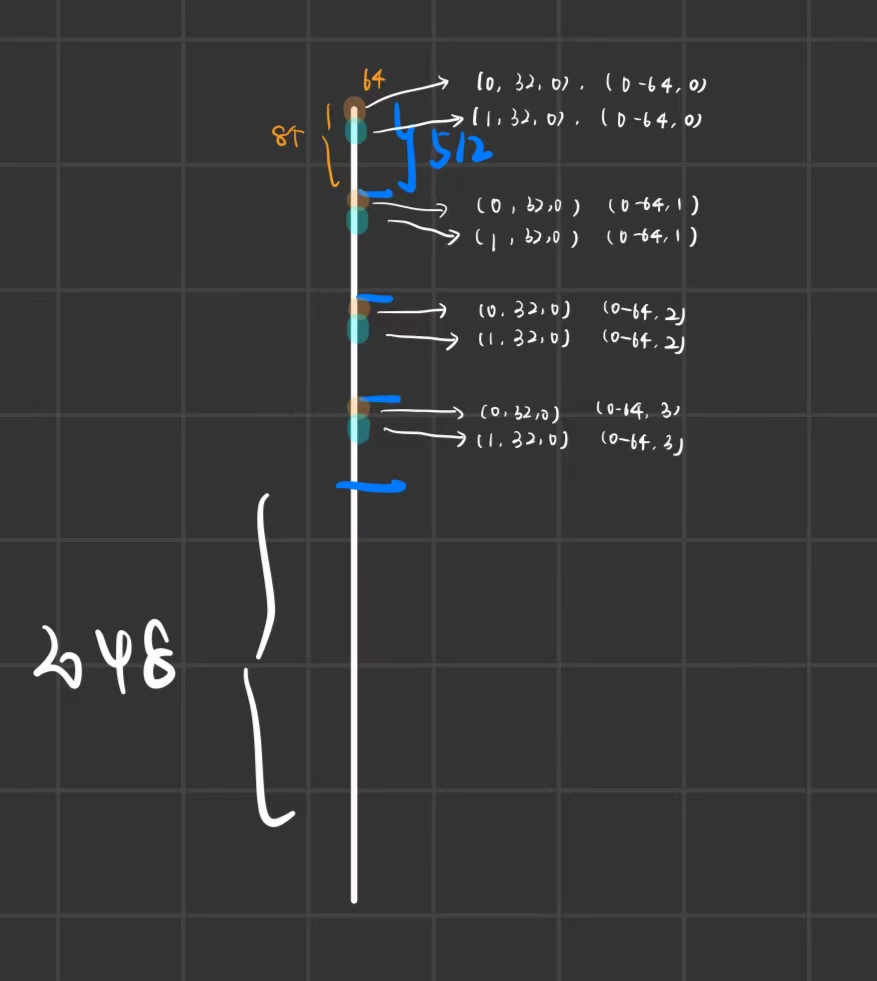 64
(0, 32, 0). (0-64, 0)
(1, 32, 0). (0-64, 0)
8个
512
(0, 32, 0) (0-64, 1)
(1, 32, 0) (0-64, 1)
(0. 32, 0] (0-64, 2)
(1. 32, 0] (0-64, 2)
(0, 32, 0) (0-64, 3)
(1. 32, 0] (0-64, 3)
2048